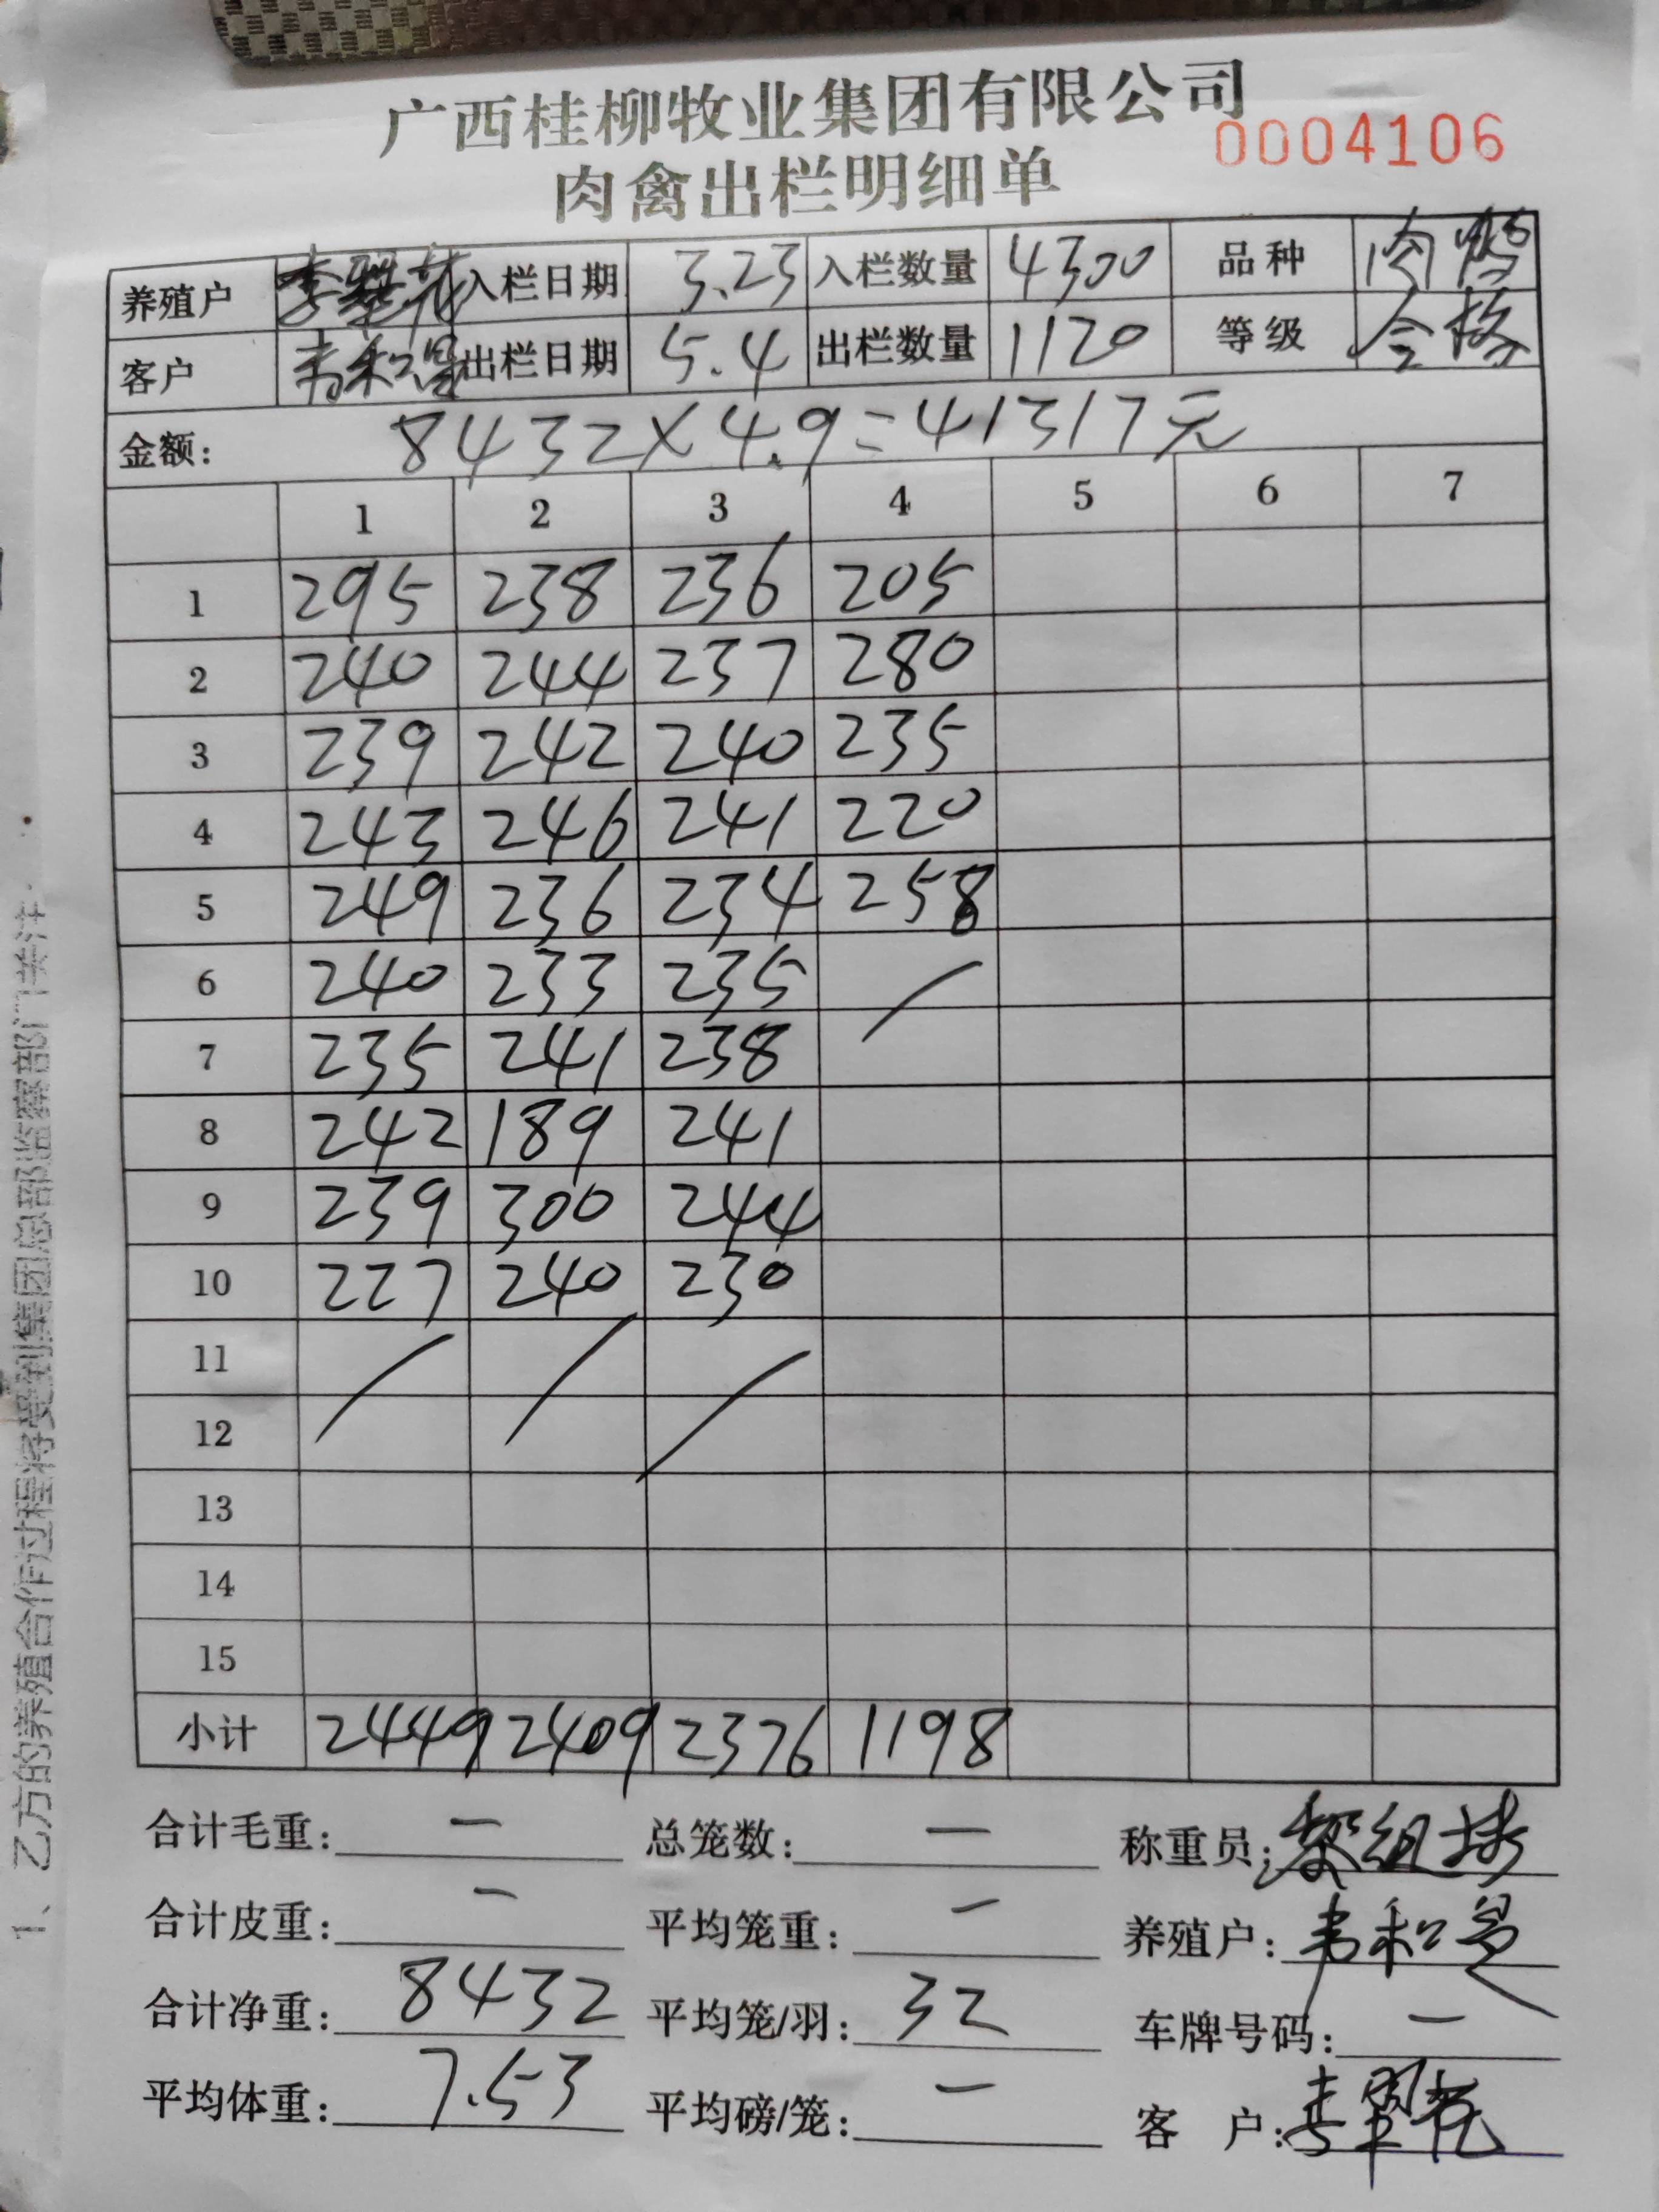 广西桂柳牧业集团有限公司
0004106
肉禽出栏明细单
养殖户 入栏日期 3.23 入栏数量 4300 品种 肉鸭
客户 韦和 出栏日期 5.4 出栏数量 1120 等级 合格
金额: 8432×4.9=41317元
1 2 3 4 5 6 7
1 295 238 236 205
2 240 244 237 280
3 239 242 240 235
4 243 246 241 220
5 249 236 234 258
6 240 233 235 /
7 235 241 238
8 242 189 241
9 239 300 244
10 227 240 230
11 / / /
12
13
14
15
小计 2449 2409 2376 1198
合计毛重: — 总笼数: — 称重员:
合计皮重: — 平均笼重: — 养殖户: 韦和
合计净重: 8432 平均笼/羽: 32 车牌号码: —
平均体重: 7.53 平均磅/笼: — 客户:
1、乙方的养殖合作过程将受到集团总部监察部门关注.